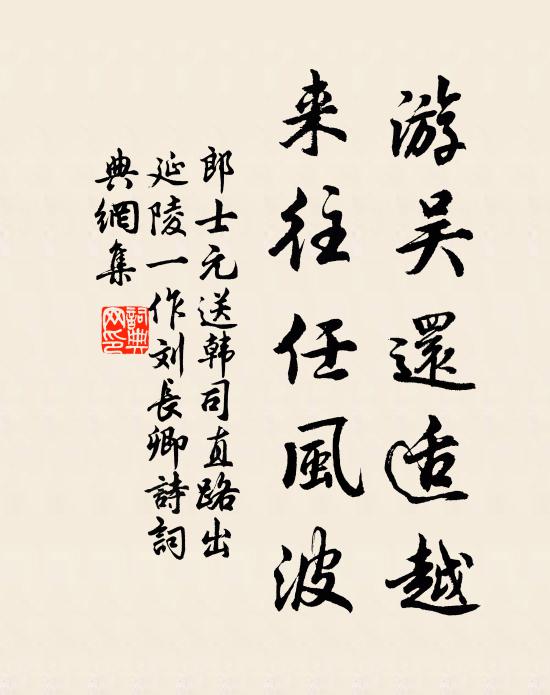 游吴還适越
来往任風波
郎士元送韩司直路出
延陵一作刘長卿詩詞
典網集
詞典网印